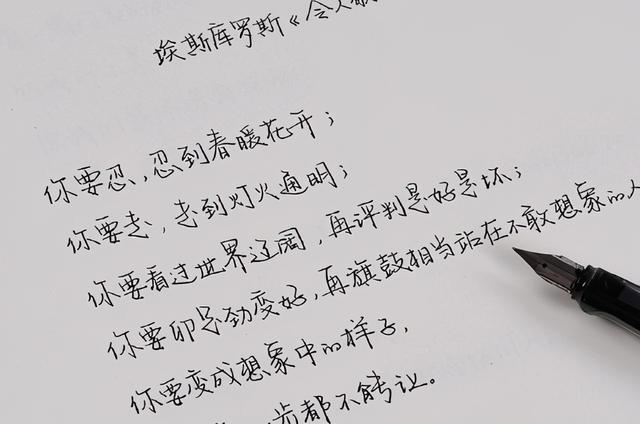 埃斯库罗斯《令人
你要忍，忍到春暖花开；
你要走，走到灯火通明；
你要看过世界辽阔，再评判是好是坏；
你要卯足劲变好，再旗鼓相当站在不敢想象的人
你要变成想象中的样子，
步都不能让。